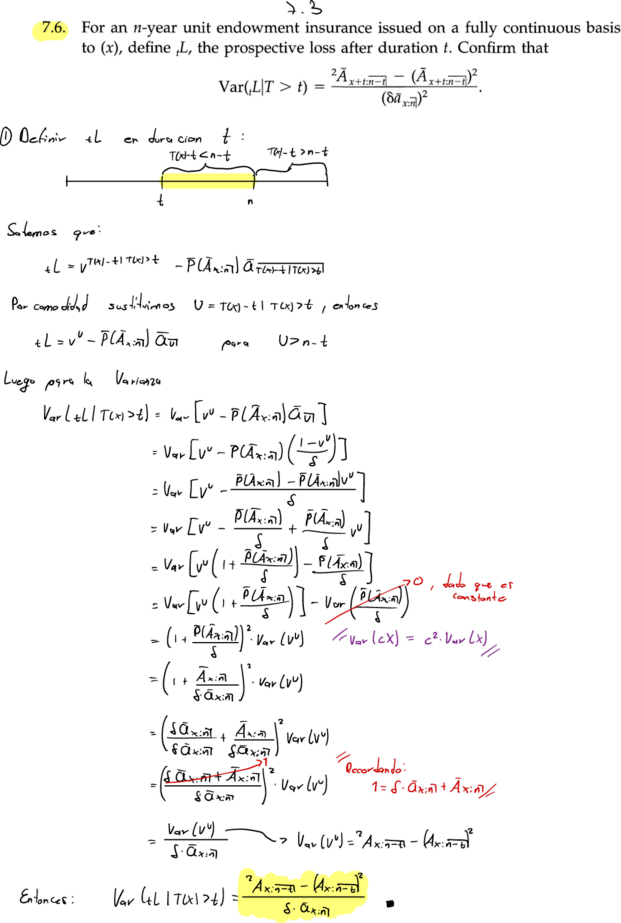 7.3
7.6. For an n-year unit endowment insurance issued on a fully continuous basis
to (x), define ₜL, the prospective loss after duration t. Confirm that
Var(ₜL|T > t) = (²Ā_{x+t:n−t⌉} − (Ā_{x+t:n−t⌉})²) / (δā_{x:n⌉})².
① Definir ₜL en duracion t :
T(x)-t<n-t   T(x)-t>n-t
t   n
Sabemos que:
ₜL = v^{T(x)-t|T(x)>t} - P̄(Ā_{x:n⌉}) ā_{T(x)-t|T(x)>t⌉}
Por comodidad sustituimos U = T(x)-t | T(x)>t, entonces
ₜL = v^U - P̄(Ā_{x:n⌉}) ā_{U⌉} para U>n-t
Luego para la Varianza
Var(ₜL|T(x)>t) = Var[v^U - P̄(Ā_{x:n⌉}) ā_{U⌉}]
= Var[v^U - P(Ā_{x:n⌉}) ((1-v^U)/δ)]
= Var[v^U - (P̄(Ā_{x:n⌉}) - P̄(Ā_{x:n⌉})v^U)/δ]
= Var[v^U - P̄(Ā_{x:n⌉})/δ + P̄(Ā_{x:n⌉})/δ v^U]
= Var[v^U (1 + P̄(Ā_{x:n⌉})/δ) - P̄(Ā_{x:n⌉})/δ]
= Var[v^U (1 + P̄(Ā_{x:n⌉})/δ)] - Var(P̄(Ā_{x:n⌉})/δ) → 0, dado que es constante
= (1 + P̄(Ā_{x:n⌉})/δ)² · Var(v^U)   // Var(cX) = c²·Var(X) //
= (1 + Ā_{x:n⌉}/(δ·ā_{x:n⌉}))² · Var(v^U)
= (δā_{x:n⌉}/(δā_{x:n⌉}) + Ā_{x:n⌉}/(δā_{x:n⌉}))² Var(v^U)
= ((δā_{x:n⌉} + Ā_{x:n⌉})/(δā_{x:n⌉}))² · Var(v^U)   → 1   // Recordando:
1 = δ·ā_{x:n⌉} + Ā_{x:n⌉} //
= Var(v^U)/(δ·ā_{x:n⌉}) → Var(v^U) = ²A_{x:n-t⌉} - (A_{x:n-t⌉})²
Entonces: Var(ₜL|T(x)>t) = (²A_{x:n-t⌉} - (A_{x:n-t⌉})²)/(δ·ā_{x:n⌉}) ■